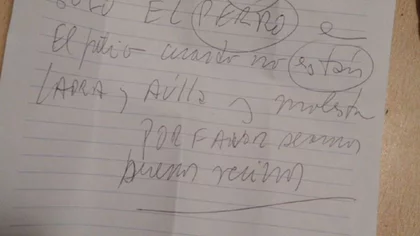 EL PERRO e
El patio cuando no están
LADRA y AÚlla y molesta
POR FAVOR seamos
buenos vecinos